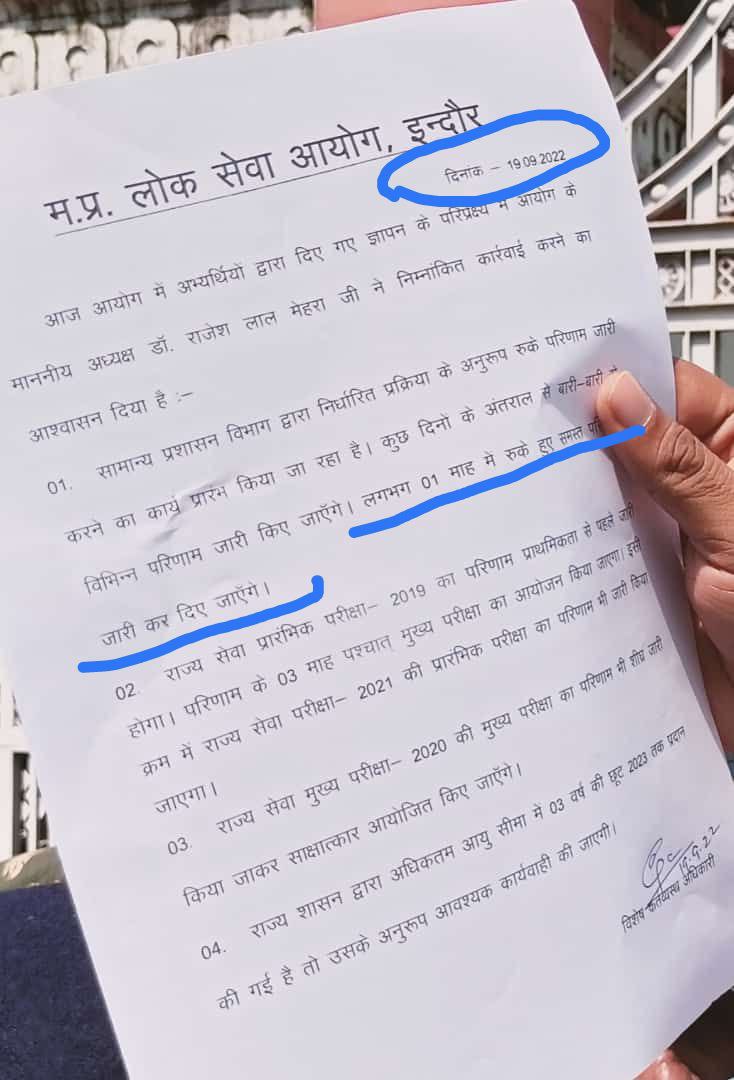 म.प्र. लोक सेवा आयोग, इन्दौर
दिनांक – 19.09.2022
आज आयोग में अभ्यर्थियों द्वारा दिए गए ज्ञापन के परिप्रेक्ष्य में आयोग के
माननीय अध्यक्ष डॉ. राजेश लाल मेहरा जी ने निम्नांकित कार्रवाई करने का
आश्वासन दिया है :–
01. सामान्य प्रशासन विभाग द्वारा निर्धारित प्रक्रिया के अनुरूप रुके परिणाम जारी
करने का कार्य प्रारंभ किया जा रहा है। कुछ दिनों के अंतराल से बारी–बारी से
विभिन्न परिणाम जारी किए जाएँगे। लगभग 01 माह में रुके हुए समस्त
जारी कर दिए जाएँगे।
02. राज्य सेवा प्रारंभिक परीक्षा– 2019 का परिणाम प्राथमिकता से पहले जारी
होगा। परिणाम के 03 माह पश्चात् मुख्य परीक्षा का आयोजन किया जाएगा। इसी
क्रम में राज्य सेवा परीक्षा– 2021 की प्रारंभिक परीक्षा का परिणाम भी जारी किया
जाएगा।
03. राज्य सेवा मुख्य परीक्षा– 2020 की मुख्य परीक्षा का परिणाम भी शीघ्र जारी
किया जाकर साक्षात्कार आयोजित किए जाएँगे।
04. राज्य शासन द्वारा अधिकतम आयु सीमा में 03 वर्ष की छूट 2023 तक प्रदान
की गई है तो उसके अनुरूप आवश्यक कार्यवाही की जाएगी।
19.9.22
विशेष कर्तव्यस्थ अधिकारी